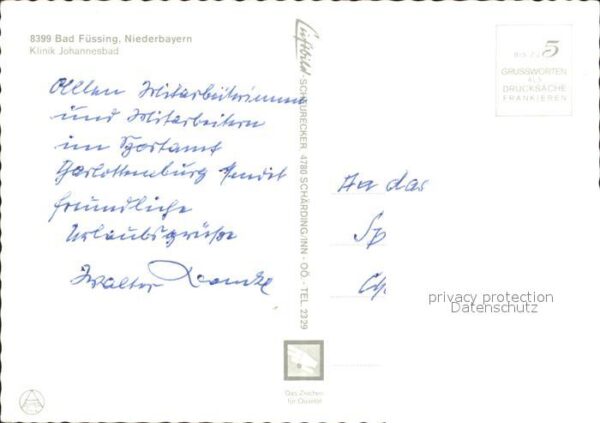 8399 Bad Füssing, Niederbayern
Klinik Johannesbad
Allen Mitarbeiterinnen
und Mitarbeitern
im Sportamt
Charlottenburg sendet
freundliche
Urlaubsgrüße
Walter
Luftbild-SCHEURECKER 4780 SCHÄRDING/INN - OÖ. - TEL. 2329
BIS ZU 5
GRUSSWORTEN
ALS
DRUCKSACHE
FRANKIEREN
An das
Sp
Ch
privacy protection
Datenschutz
Das Zeichen
für Qualität